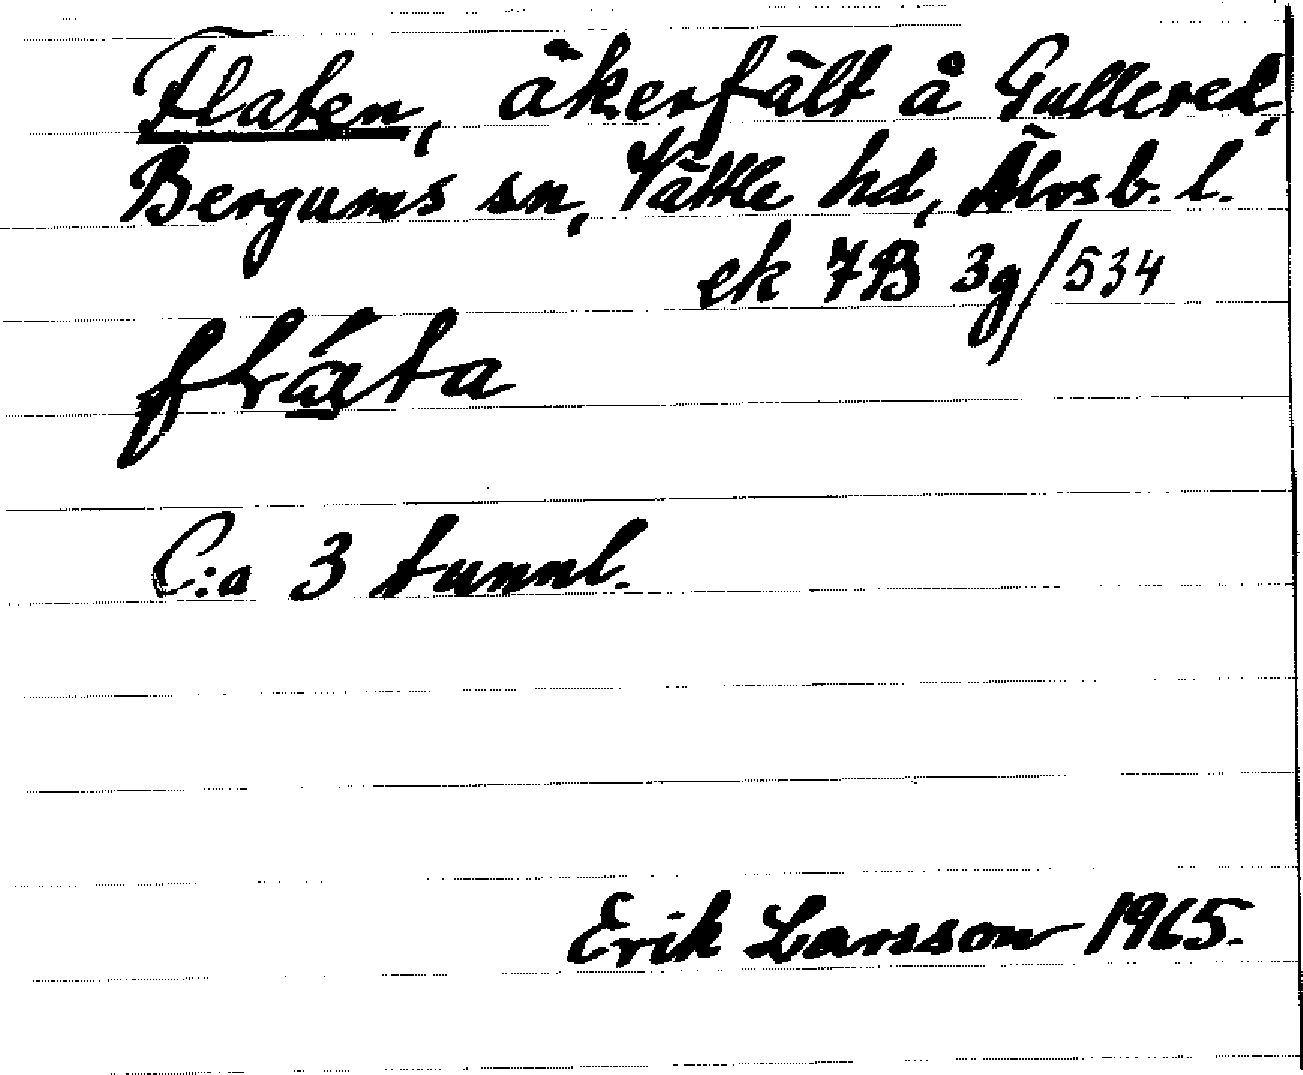 Flaten, åkerfält å Gullered,
Bergums sn, Vättle hd, Älvsb. l.
ek 7B 3g/534
C:a 3 tunnl.
Erik Larsson 1965.